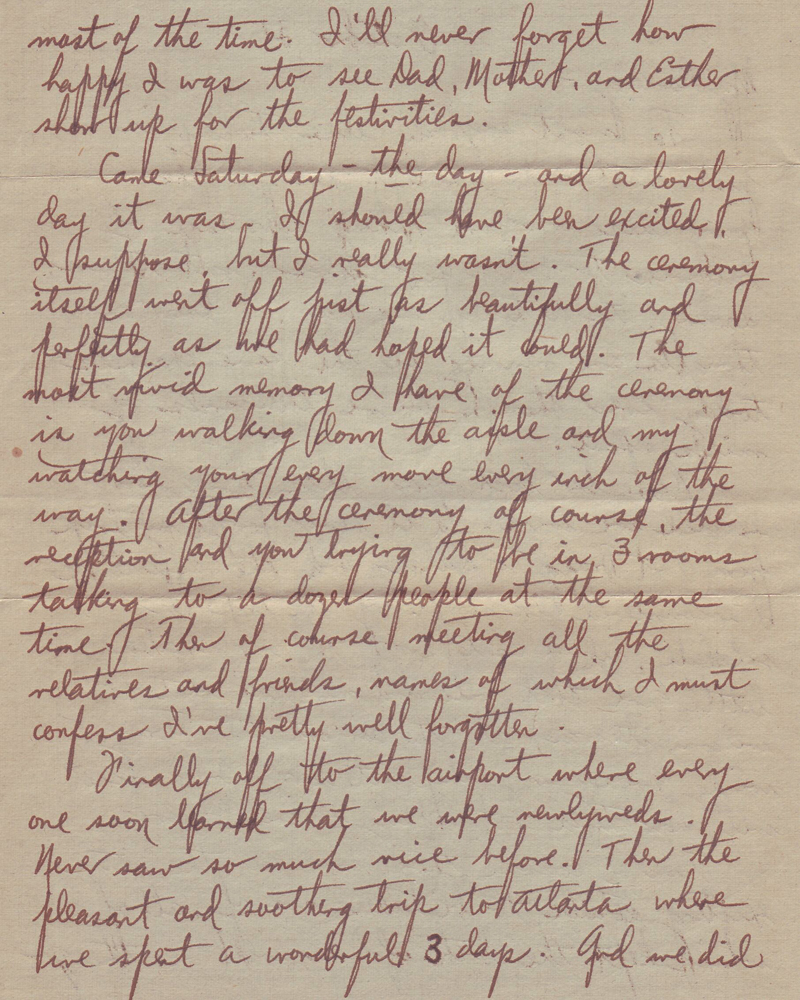 most of the time. I'll never forget how
happy I was to see Dad, Mother, and Esther
show up for the festivities.
Came Saturday - the day - and a lovely
day it was. I should have been excited,
I suppose, but I really wasn't. The ceremony
itself went off just as beautifully and
perfectly as we had hoped it would. The
most vivid memory I have of the ceremony
is you walking down the aisle and my
watching your every move every inch of the
way. After the ceremony of course, the
reception and you trying to be in 3 rooms
talking to a dozen people at the same
time. Then of course meeting all the
relatives and friends, names of which I must
confess I've pretty well forgotten.
Finally off to the airport where every
one soon learned that we were newlyweds.
Never saw so much rice before. Then the
pleasant and soothing trip to Atlanta where
we spent a wonderful 3 days. And we did